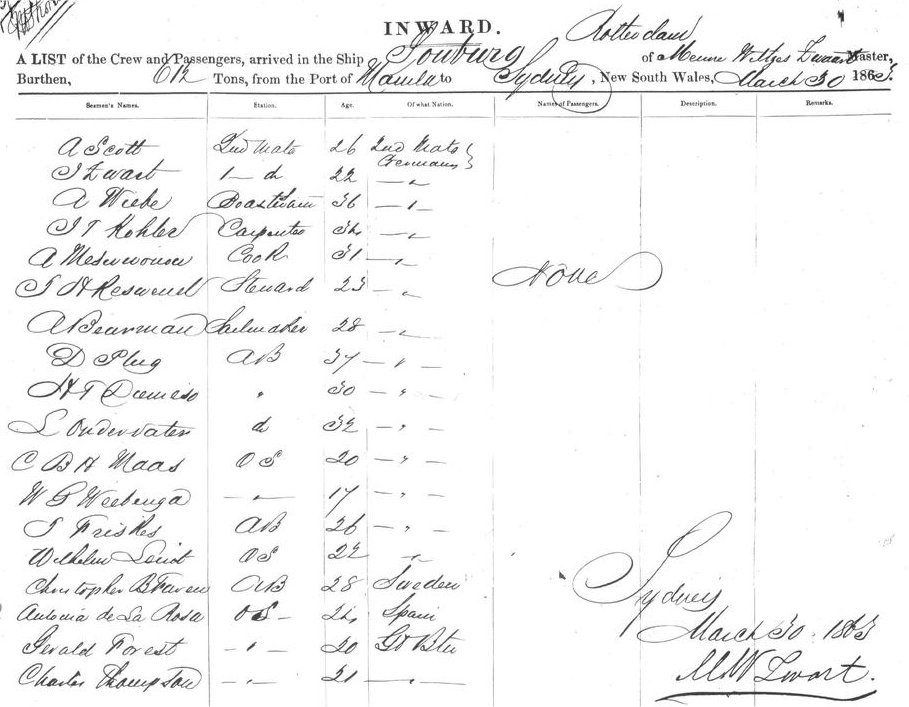 INWARD.
A LIST of the Crew and Passengers, arrived in the Ship Souburg Rotterdam of Menne Witzes Zwaart Master,
Burthen, 612 Tons, from the Port of Manila to Sydney, New South Wales, March 30 1863.
Seamen's Names. Station. Age. Of what Nation. Names of Passengers. Description. Remarks.
A Scott 2nd Mate 26 2nd Mate Germany
J Zwart 1 — d 22 — "
A Wiebe Boatswain 36 — " —
J T Kohler Carpenter 34 — "
A Cook 31 — "
J H Steward 23 — "
None
A Bearman Sailmaker 28 — "
D Plug AB 37 — " —
H T " 30 — " —
L Onderwater d 32 — " —
C B H Maas OS 20 — " —
W G Weebenga — " — 17 — " —
J Friskes AB 26 — " —
Wilhelm OS 22 "
Christopher B AB 28 Sweden
Antonia de La Rosa OS — 24 Spain
Gerald Forest — " — 20 Gt Btn
Charles Thompson — " — 21 — " —
Sydney
March 30. 1863
M W Zwart.